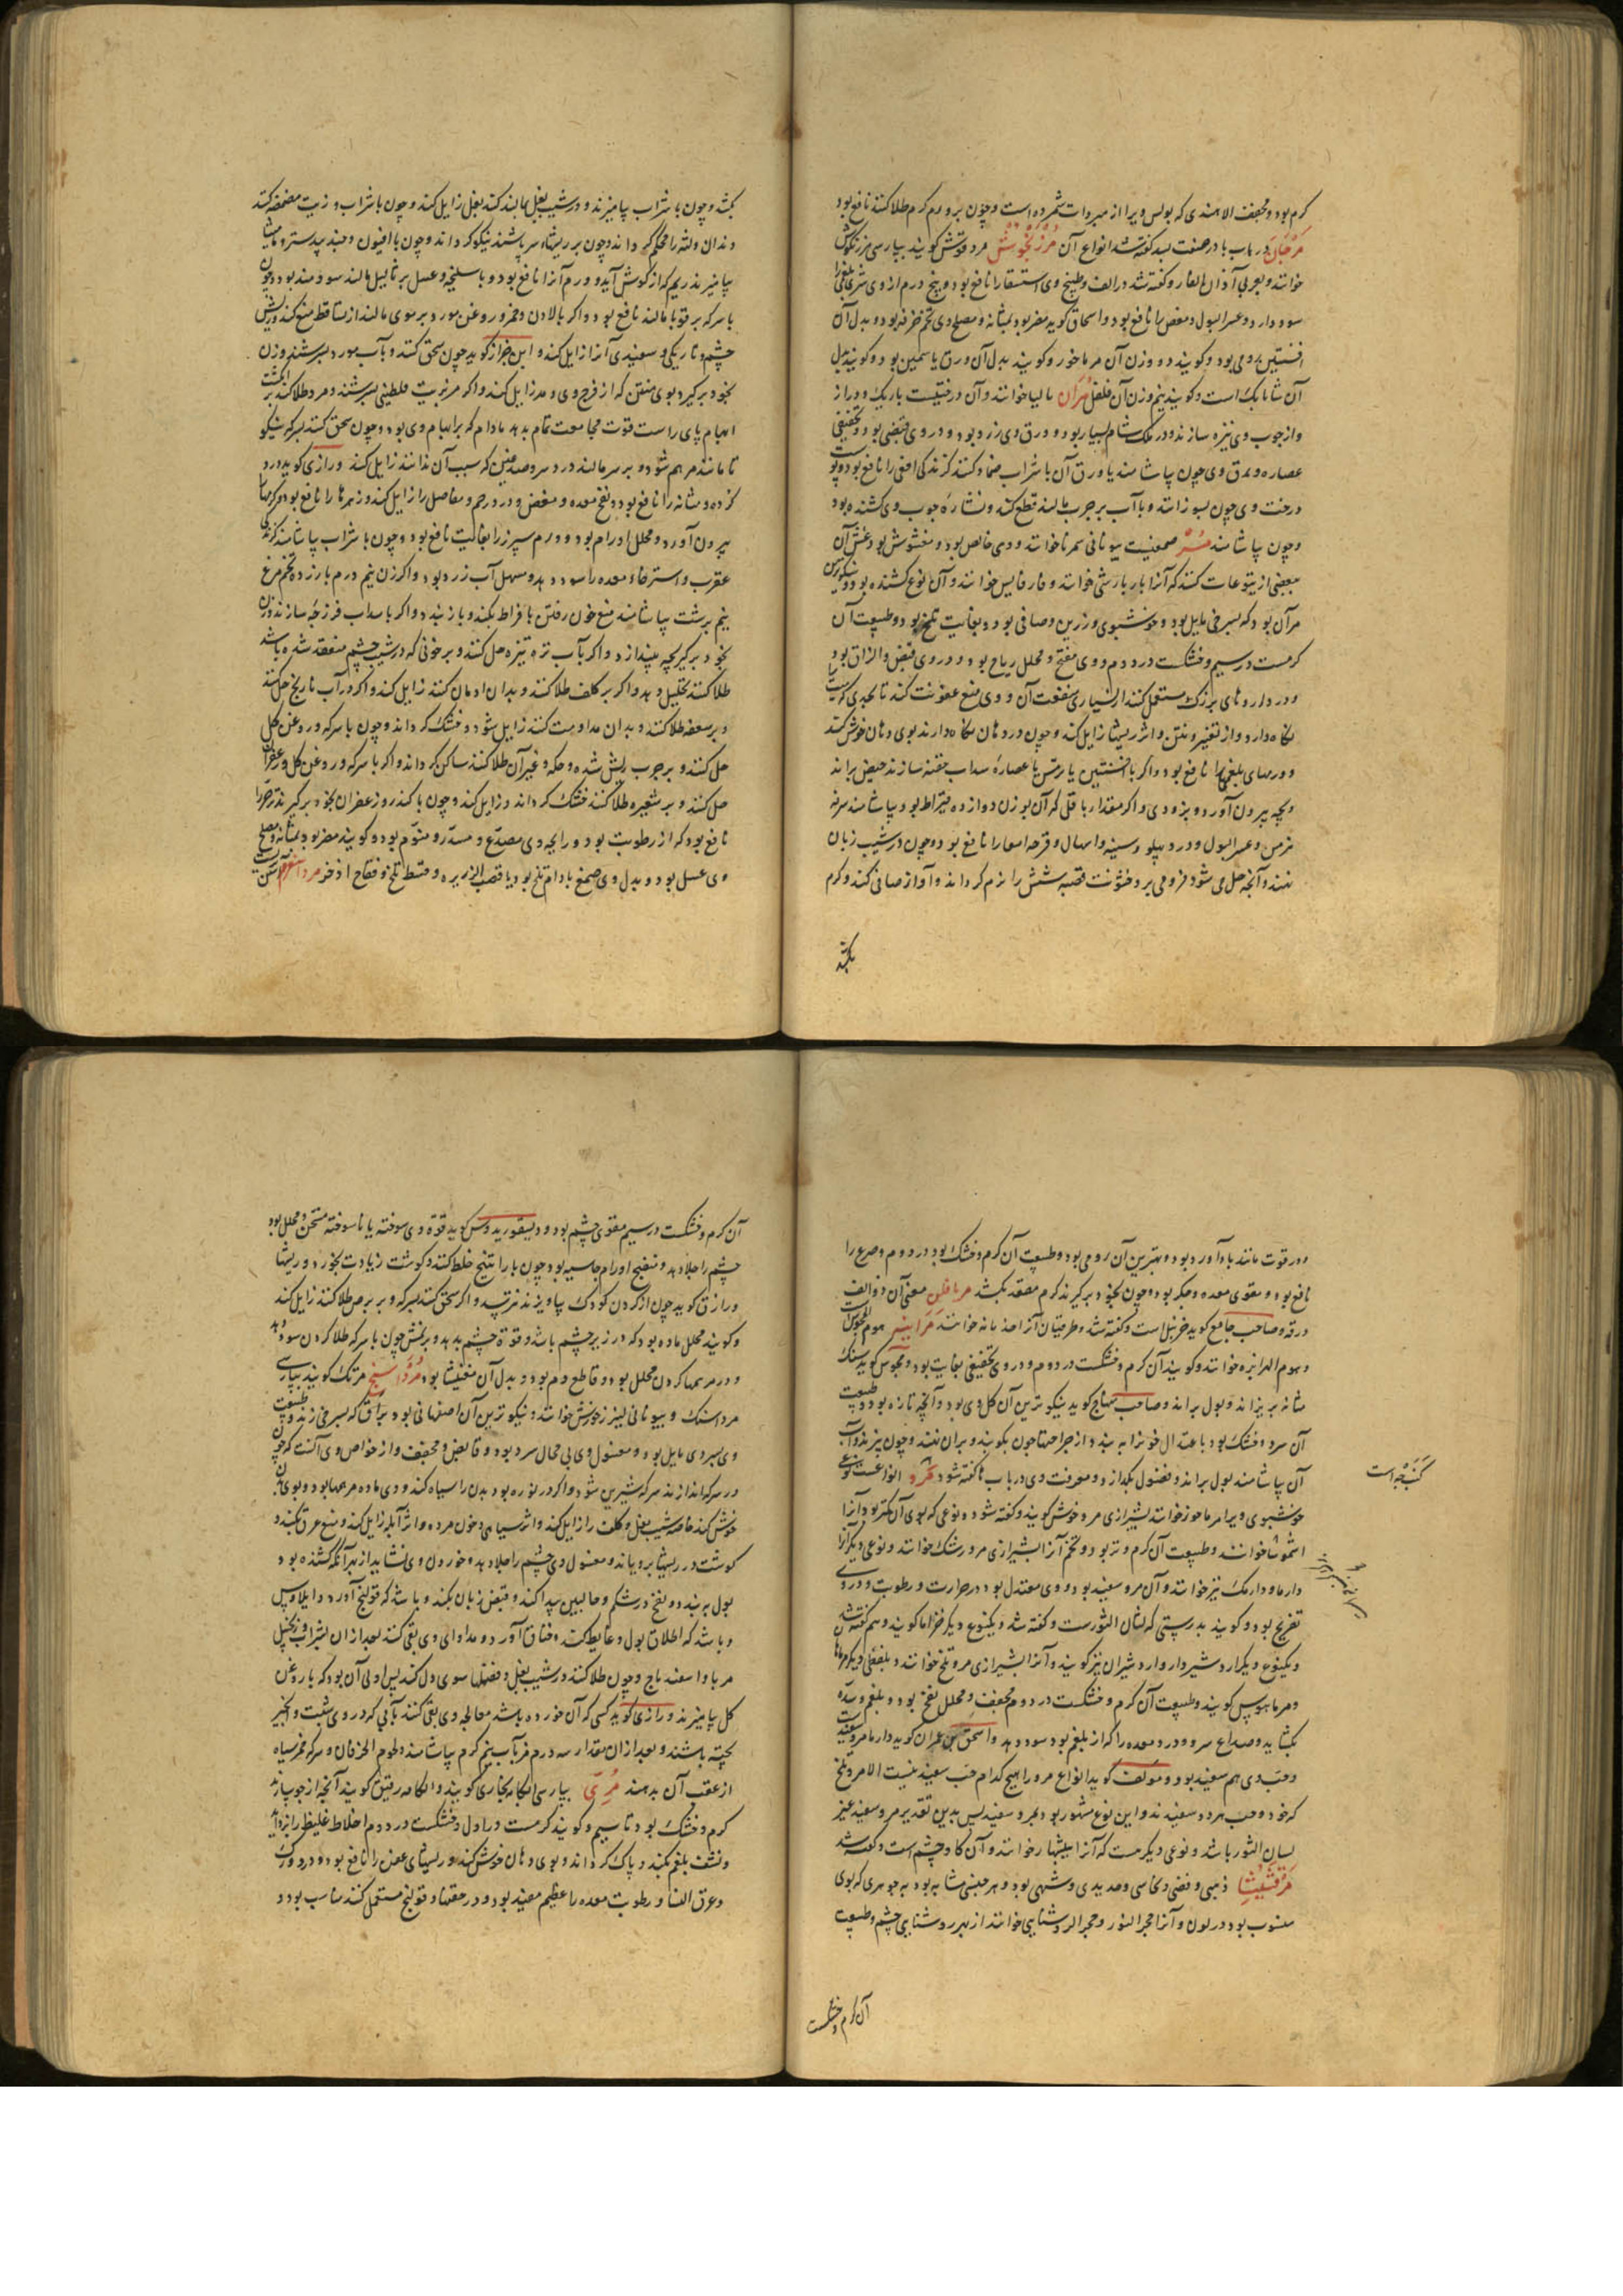 کرم بود و مجفف الا هندی که بولس ویرا از مبردات شمرده است و چون برورم کرم طلا کنند نافع بود
مرجان در باب با در صفت بسد کفته شد انواع آن مرزنجوش مردقوش کویند بپارسی مرزنکوش
خوانند و بعربی آذان الفار و کفته شد در الف و طبیخ وی استسقا را نافع بود و پنج درم از وی شری بلغمرا
سود دارد و عسر البول و مغص را نافع بود و اسحاق کوید مضر بود بمثانه و مصلح وی تخم خرفه بود و بدل آن
افسنتین رومی بود و کویند دو وزن آن مرماخور و کویند بدل آن ورق یاسمین بود و کویند بدل
آن شابابک است و کویند نیم وزن آن فلفل مران مالیا خوانند و آن درختیست باریک و دراز
و از چوب وی نیزه سازند و در ملک شام بسیار بود و ورق وی زرد بود و در وی قبضی بود و تجفیفی
عصاره ورق وی چون بیاشامند یا ورق آن با شراب ضماد کنند کزندکی افعی را نافع بود و پوست
درخت وی چون بسوزانند و با آب بر جرب مالند قطع کند و نشاره چوب وی کشنده بود
و چون بیاشامند مر صمغیست یونانی سمرنا خوانند و وی خالص بود و مغشوش بود غش آن
ببعضی از یتوعات کنند که آنرا باربارشی خوانند و فارفاییس خوانند و آن نوع کشنده بود و نیکوترین
مر آن بود که بسرخی مایل بود و خوشبوی و زرین و صافی بود و بغایت تلخ بود و طبیعت آن
کرمست در سیم و خشکست در دوم و وی مفتح و محلل ریاح بود و در وی قبض و الزاق بود
و در داروهای بزرک مستعمل کنند از بسیاری منفعت آن و وی منع عفونت کند تا بحدی که میت را
نکاه دارد و از تغیر و نتن و اثر ریشها زایل کند و چون در دهان نکاه دارند بوی دهان خوش کند
و ورمهای بلغمی را نافع بود و اکر با افسنتین یا ترمس یا عصاره سداب حقنه سازند حیض براند
و بچه بیرون آورد و بزودی و اکر مقدار باقلی که آن بوزن دوازده قیراط بود بیاشامند سرفه
مزمن و عسر البول و درد پهلو و سینه و اسهال و قرحه امعا را نافع بود و چون در شیب زبان
نهند و آنچه حل می شود فرو می برد خشونت قصبه شش را نرم کرداند و آواز صافی کند و کرم
بکشد
بکشد و چون با شراب بیامیزند و در شیب بغل مالند کند بغل زایل کند و چون با شراب و زیت مضمضه کنند
دندان و لثه را محکم کرداند و چون بر ریشهاء سر پاشند نیکو کرداند و چون با افیون و جندبیدستر و مامیثا
بیامیزند ریم که از کوش آید و ورم آنرا نافع بود و با سلیخه و عسل بر ثالیل مالند سودمند بود و چون
با سرکه بر قوبا مالند نافع بود و اکر با لادن و خمر و روغن مورد بر موی مالند از تساقط منع کند و ریش
چشم و تاریکی و سفیدی آنرا زایل کند و ابن جزار کوید چون سحق کنند و بآب مورد بسرشند و زن
بخود برکیرد بوی منتن که از فرج وی دمد زایل کند و اکر مر بزیت فلسطینی بسرشند و مرد طلا کند بر انکشت
ابهام پای راست قوت مجامعت تمام بدهد مادام که بر ابهام وی بود و چون سحق کنند بسرکه نیکو
تا مانند مرهم شود و بر سر مالند درد سر و صدغین که سبب آن ندانند زایل کند و رازی کوید درد
کرده و مثانه را نافع بود و نفخ معده و مغص و درد رحم و مفاصل را زایل کند و زهرها را نافع بود و کرمها
بیرون آورد و محلل اورام بود و ورم سپرز را بغایت نافع بود و چون با شراب بیاشامند کزندکی
عقرب و استرخاء معده را سود دهد و مسهل آب زرد بود و اکر زن نیم درم با زرده تخم مرغ
نیم برشت بیاشامند منع خون رفتن بافراط بکند و باز بندد و اکر با سداب فرزجه سازند و زن
بخود برکیرد بچه بیندازد و اکر بآب ترتیزه حل کنند و بر خونی که در شیب چشم منعقد شده باشد
طلا کنند تحلیل دهد و اکر بر کلف طلا کنند و بدان ادمان کنند زایل کند و اکر در آب نارنج حل کنند
و بر سعفه طلا کنند و بدان مداومت کنند زایل شود و خشک کرداند و چون با سرکه و روغن کل
حل کنند و بر جرب ریش شده و حکه و غیر آن طلا کنند ساکن کرداند و اکر با سرکه و روغن کل و زعفران
حل کنند و بر شعیره طلا کنند خشک کرداند و زایل کند و چون با کندر و زعفران بخود برکیرند
نافع بود که از رطوبت بود و رایحه وی مصدع و مسدر و منوم بود و کویند مضر بود بمثانه و مصلح
وی عسل بود و بدل وی صمغ بادام تلخ بود یا قصب الذریره و قسط تلخ و فقاح اذخر مرداسفرم
و در قوت مانند بادآورد بود و بهترین آن رومی بود و طبیعت آن کرم و خشک بود در دوم و صرع را
نافع بود و مقوی معده و جکر بود و چون بخود برکیرند کرم مقعد بکشد مرافلن معنی آن ذو الف
ورقه و صاحب جامع کوید خرنبل است و کفته شد و طرقیان آنرا خوانند مرانیه هوم المجوس
و هوم المرابزه خوانند و کویند آن کرم و خشکست در دوم و در وی تجفیفی بغایت بود و مجوس کوید سنک
مثانه بریزاند و بول براند و صاحب منهاج کوید نیکوترین آن کل وی بود و آنچه تازه بود و طبیعت
آن سرد و خشک بود باعتدال خونرا ببندد از جراحتها چون بکوبند و بران نهند و چون بپزند و آب
آن بیاشامند بول براند و فضول بکدازد و معرفت وی در باب کفته شود مرو انواعست نوعی
خوشبوی و ویرا مرماحوز خوانند بشیرازی مروخوش کویند و کفته شود و نوعی که بوی آن کمتر بود آنرا
خوانند و طبیعت آن کرم و تر بود و تخم آنرا بشیرازی مرورشک خوانند و نوعی دیکر آنرا
دارما و دارمک نیز خوانند و آن مرو سفید بود و وی معتدل بود در حرارت و رطوبت و در وی
تفریح بود و کویند بدرستی که لسان الثورست و کفته شد و یکنوع دیکر خزاما کویند و هم کفته شد
و یکنوع دیکر اردشیردار و اردشیران نیز کویند و آنرا بشیرازی مرو تلخ خوانند و بلفظی دیکر مرماهان
و مرماهوس کویند و طبیعت آن کرم و خشکست در دوم مجفف و محلل نفخ بود و بلغم و سده
بکشاید و صداع سر و درد معده را که از بلغم بود سود دهد و اسحق بن عمران کوید دارما مرو سفید
و حب وی هم سفید بود و مولف کوید انواع مرو را هیچ کدام حب سفید نیست الا مرو تلخ
که خود و حب هر دو سفیدند و این نوع مشهور بود بمرو سفید پس بدین تقدیر مرو سفید غیر
لسان الثور باشد و نوعی دیکر هست که آنرا بیشبهار خوانند و آن کاوچشم است و کفته شد
مرقشیثا ذهبی و فضی و نحاسی و حدیدی و شبهی بود و هر جنسی مشابه بود به جوهری که بوی
منسوب بود در لون و آنرا حجر النور و حجر الروشنایی خوانند از بهر روشنایی چشم و طبیعت
کنب‌چه است
آن کرم و خشکست
آن کرم و خشکست در سیم مقوی چشم بود و دیسقوریدوس کوید قوة وی سوخته یا ناسوخته مسخن و محلل بود
چشم را جلا دهد و منضج اورام جاسیه بود چون با راتینج خلط کنند و کوشت زیادت بخورد و ریشها
و رازی کوید چون از کردن کودک بیاویزند نترسد و اکر سحق کنند بسرکه و بر برص طلا کنند زایل کند
و کویند محلل ماده بود که در زیر چشم باشد و قوة چشم بدهد و بر نمش چون با سرکه طلا کردن سود دهد
و در مرهمها کردن محلل بود و قاطع دم بود و بدل آن مغنیسا بود مرداسنج مرتک کویند بپارسی
مرداسنک و بیونانی لیثرزجوش خوانند و نیکوترین آن اصفهانی بود براق که بسرخی زند و طبیعت
وی بسردی مایل بود و مغسول وی بی محال سرد بود و قابض و مجفف و از خواص وی آنست که چون
در سرکه اندازند سرکه شیرین شود و اکر در نوره بود بدن را سیاه کند و وی ماده مرهمها بود و بوی بدن
خوش کند خاصه شیب بغل و کلف را زایل کند و اثر سیاهی و خون مرده و اثر آبله زایل کند و منع عرق بکند و
کوشت در ریشها برویاند و مغسول وی چشم را جلا دهد و خوردن وی نشاید از بهر آنکه کشنده بود
بول ببندد و نفخ در شکم و حالبین پیدا کند و قبض زبان بکند و باشد که قولنج آورد و ایلاوس
و باشد که اطلاق بول و غایط کند و خناق آورد و مداوای وی بقی کنند بعد از آن بشراب و زنجبیل
مربا و اسفیدباج و چون طلا کنند در شیب بغل و فضلها سوی دل کند پس اولی آن بود که با روغن
کل بیامیزند و رازی کوید کسی که آن خورده باشد معالجه وی بقی کنند بآبی که در وی شبت و انجیر
پخته باشند و بعد از آن مقدار سه درم مر بآب نیم کرم بیاشامند و لحوم الخرفان و سرکه خمر سیاه
از عقب آن بدهند مری بپارسی آبکامه بخاری کویند و آبکامه رقیق کویند آنچه از جو سازند
کرم و خشک بود تا سیم و کویند کرمست در اول و خشکست در دوم اخلاط غلیظ را بزداید
و نشف بلغم بکند و پاک کرداند و بوی دهان خوش کند و ریشهای عفن را نافع بود و درد ورک
و عرق النسا و رطوبت معده را عظیم مفید بود و در حقنها و قولنج مستعمل کنند مناسب بود و